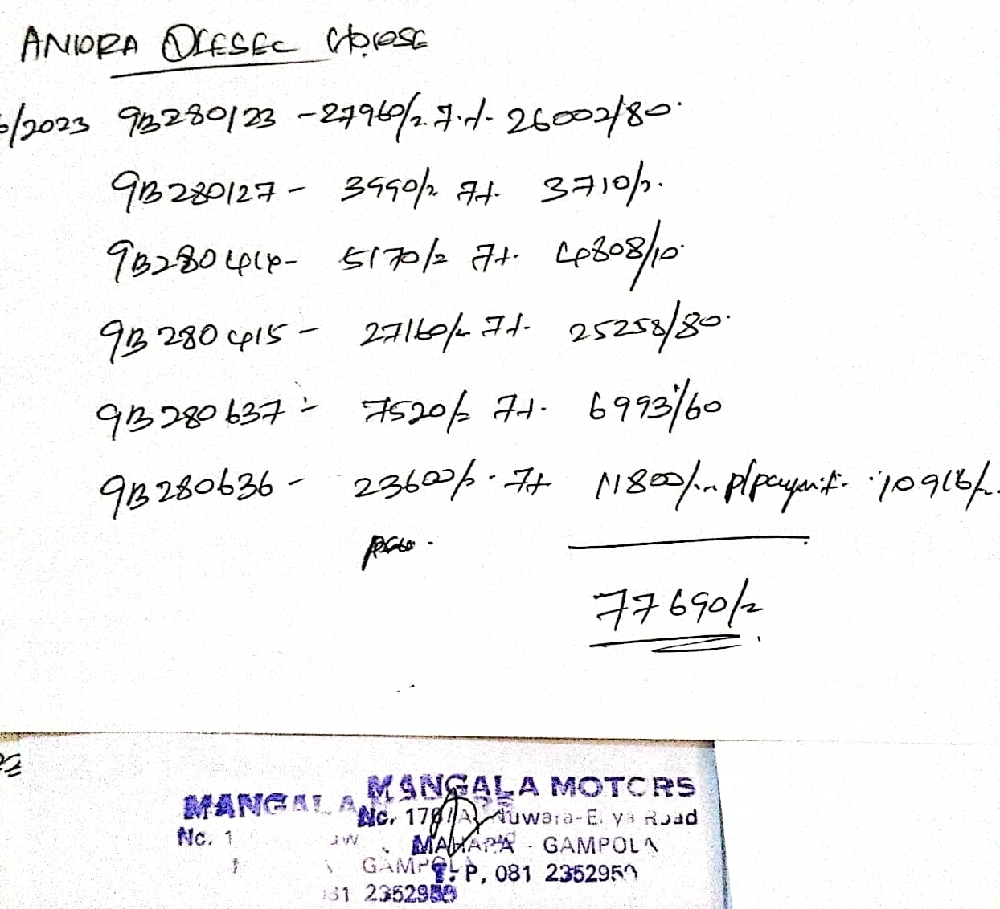 ANURA DIESEL HOUSE
6/2023 9B280123 - 27960/= 7% 26002/80
9B280127 - 3990/= 7% 3710/=
9B280414 - 5170/= 7% 4808/10
9B280415 - 27160/= 7% 25258/80
9B280637 - 7520/= 7% 6993/60
9B280636 - 23600/= 7% 11800/= p/payment 10916/=
77690/=
MANGALA MOTORS
MANGALA
No. 178/A, Nuwara-Eliya Road
No. 1
MAHARA - GAMPOLA
GAMPOLA
T. P. 081 2352950
081 2352950